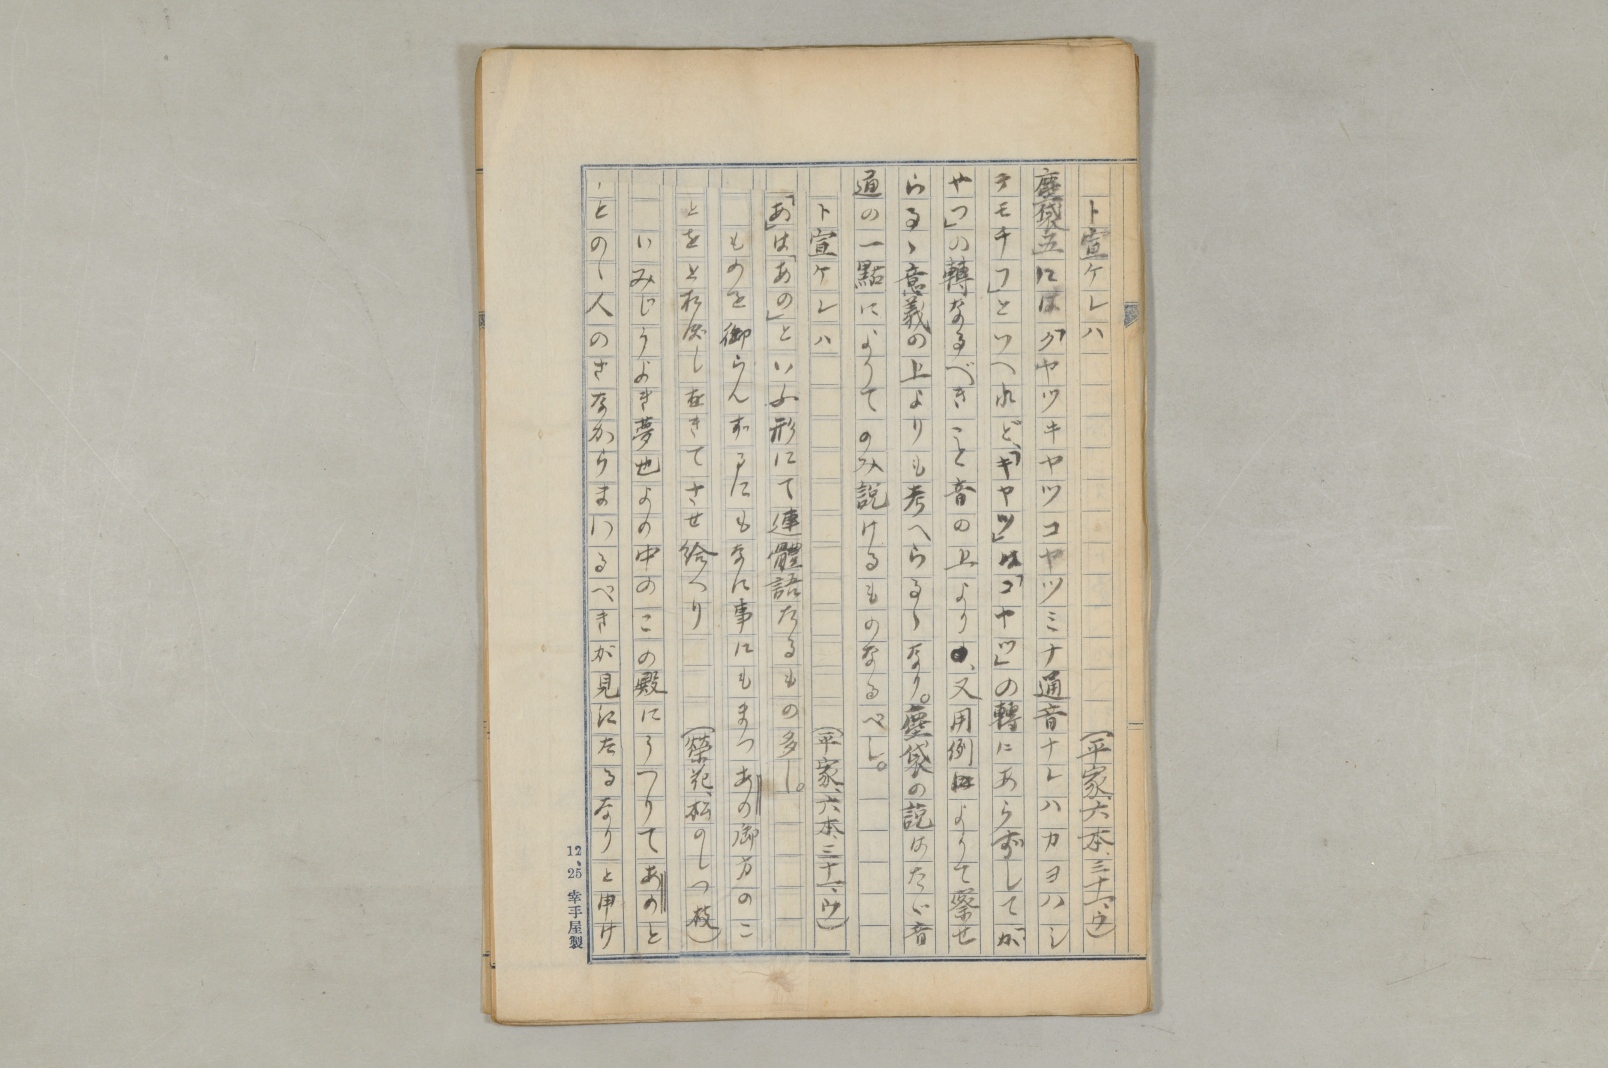 ト宣ケレハ　（平家、六本、三十一、ウ）
塵袋五には「ガヤツキヤツコヤツミナ通音ナレハカヨハシ
テモチフ」といへれど、「キヤツ」は「コヤツ」の轉にあらずしてが
やつ」の轉なるべきこと音の上よりも、又用例によりて察せ
らるゝ意義の上よりも考へらるゝなり。塵袋の説はたゞ音
通の一點によりてのみ説けるものなるべし。
ト宣ケレハ　（平家、六本、三十一、ウ）
「あ」は「あの」といふ形にて連體語たるもの多し。
ものを御らんずるにもなに事にもまつあの御方のこ
とをとり戻しをきてさせ給へり　（榮花、松のしつ枝）
いみじうよき夢也よの中のこの殿にうつりてあのと
のゝ人のさなからまいるべきが見にたるなりと申け
12、25 幸手屋製